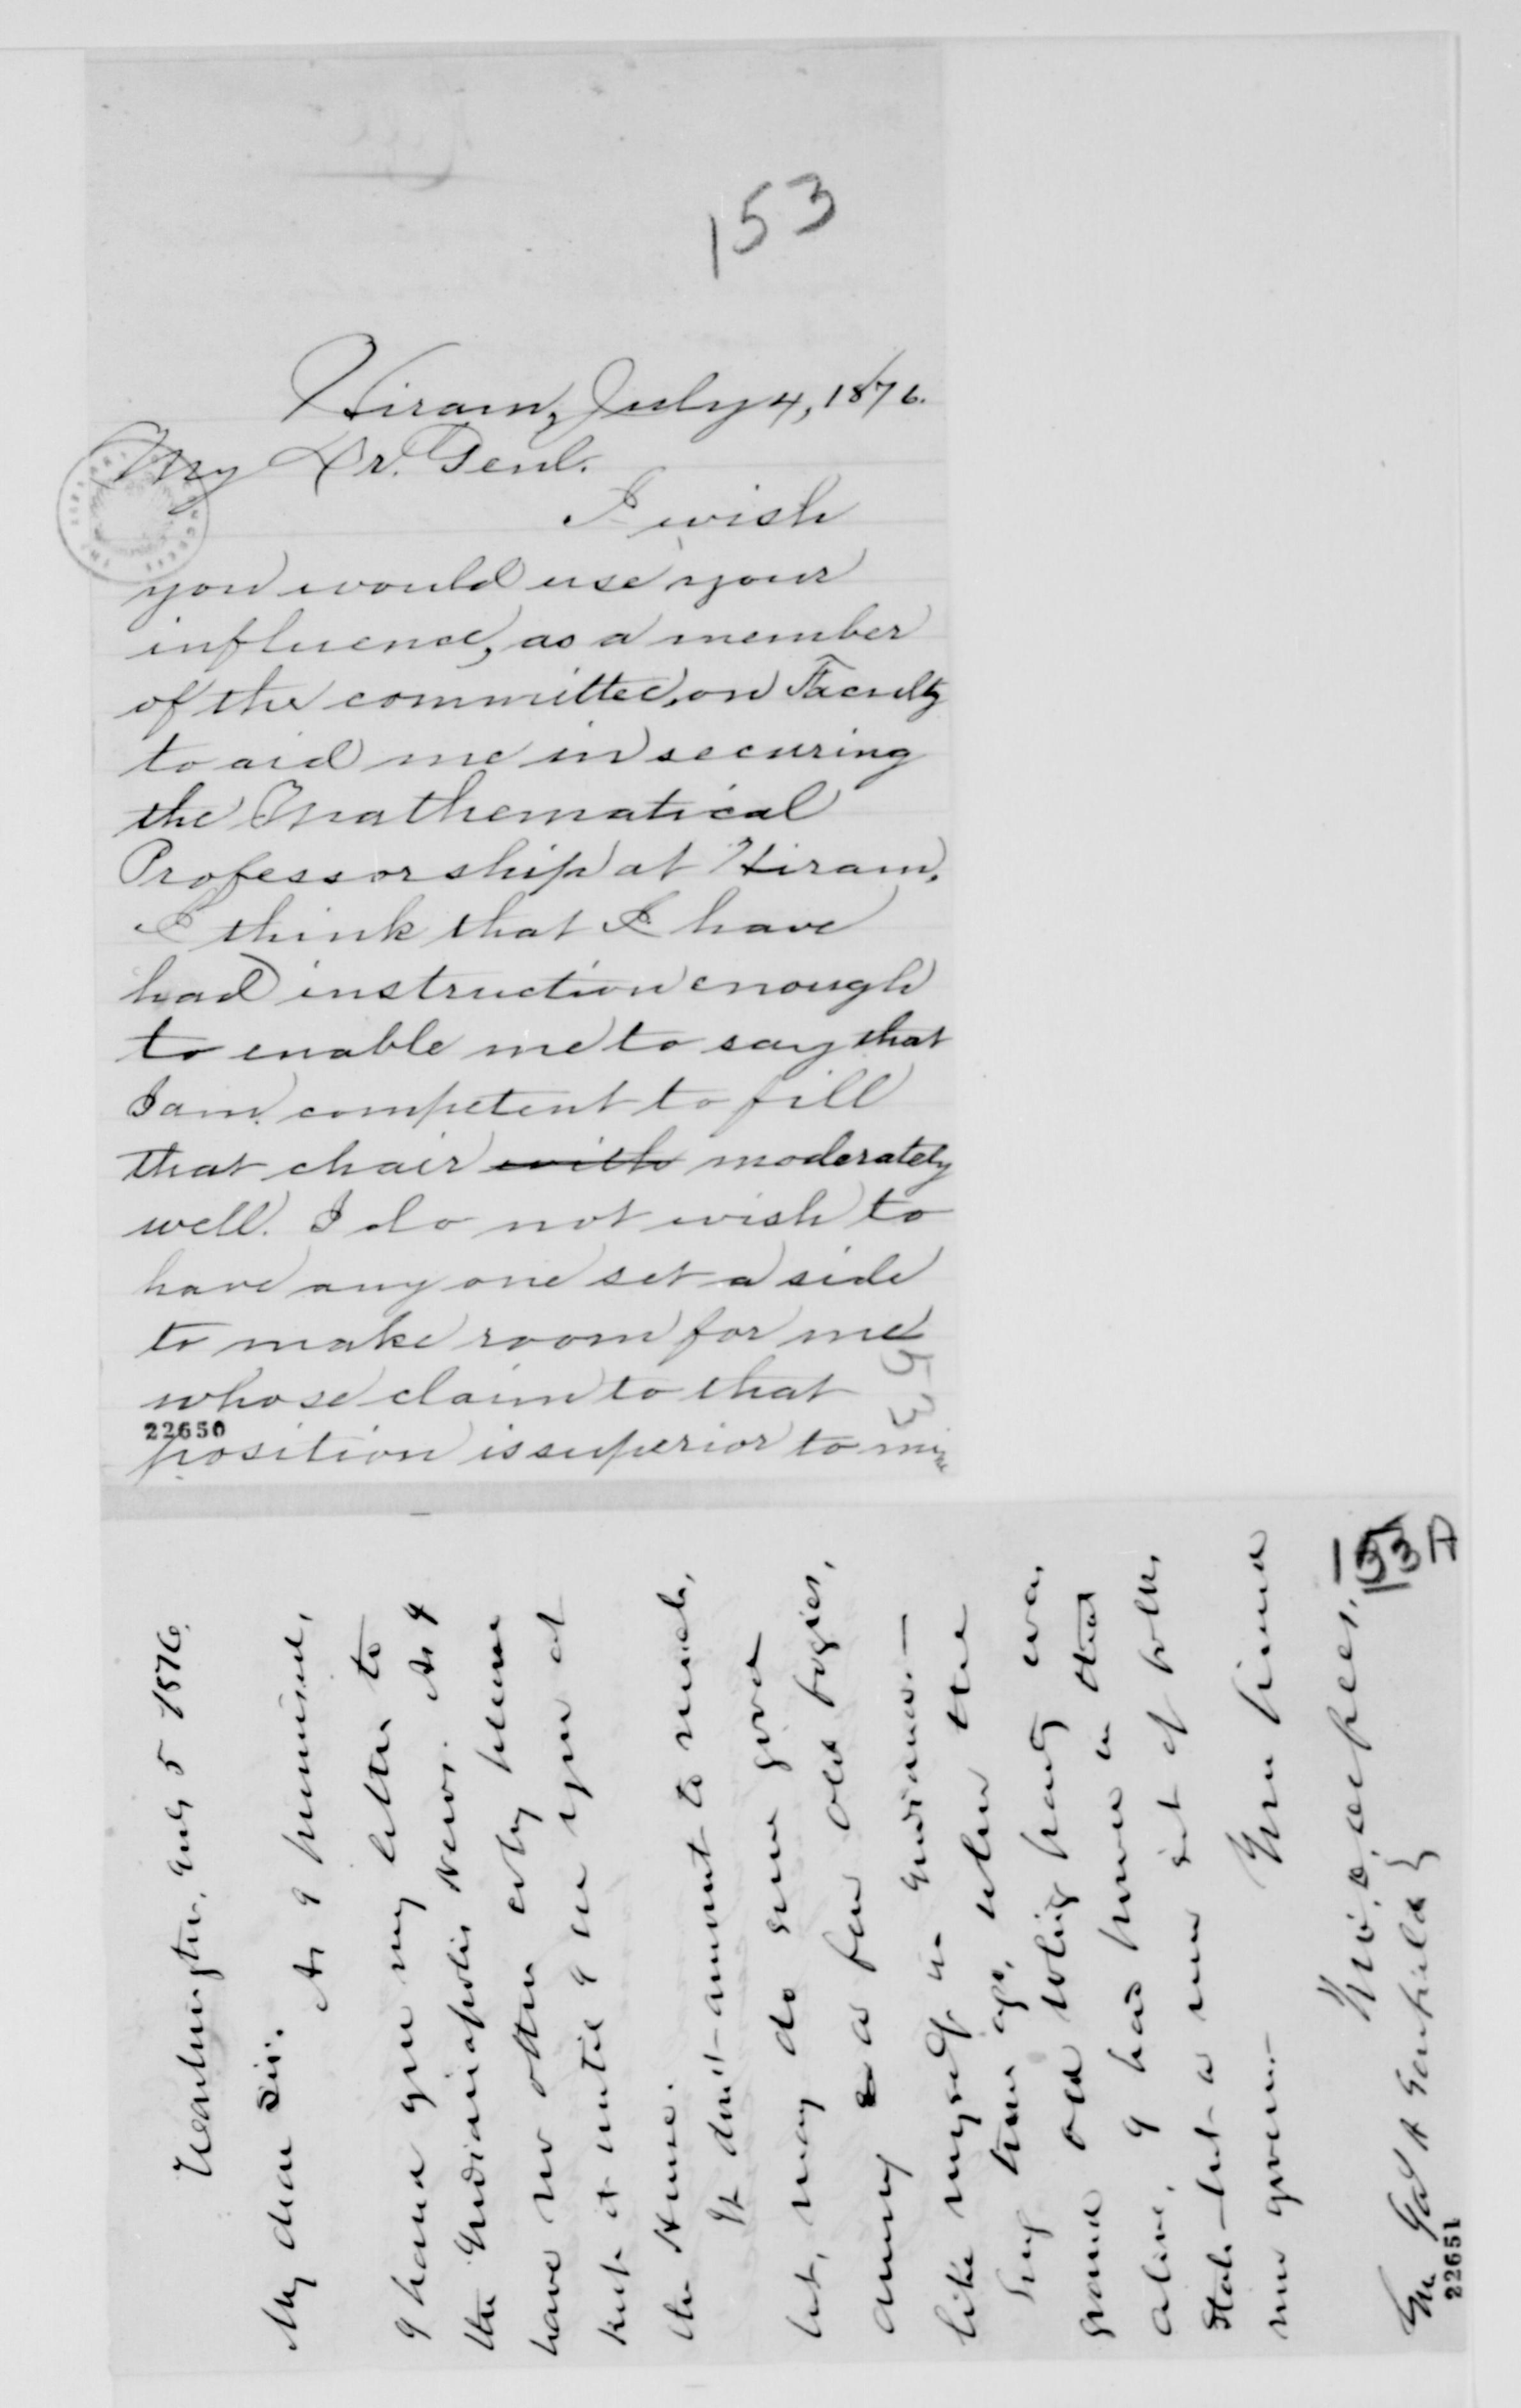 153
Hiram, July 4, 1876.
My Dr. Genl.
I wish
you would use your
influence, as a member
of the committee, on Faculty
to aid me in securing
the Mathematical
Professorship at Hiram.
I think that I have
had instruction enough
to enable me to say that
I am competent to fill
that chair with moderately
well. I do not wish to
have any one set aside
to make room for me
whose claim to that
position is superior to mine
22650
153A
Washington, July 5 1876.
My dear Sir.
As I promised,
I hand you my letter to
the Indianapolis News. As I
have no other copy please
keep it until I see you at
the House.
It don't amount to much,
but, may do some good
among a few old fogies,
like myself, in Indiana.—
Long time ago, when the
grand old Whig party was
alive, I had power in that
State—but a new set of folks
now govern.—
Your friend
Gen Jas A Garfield
22651